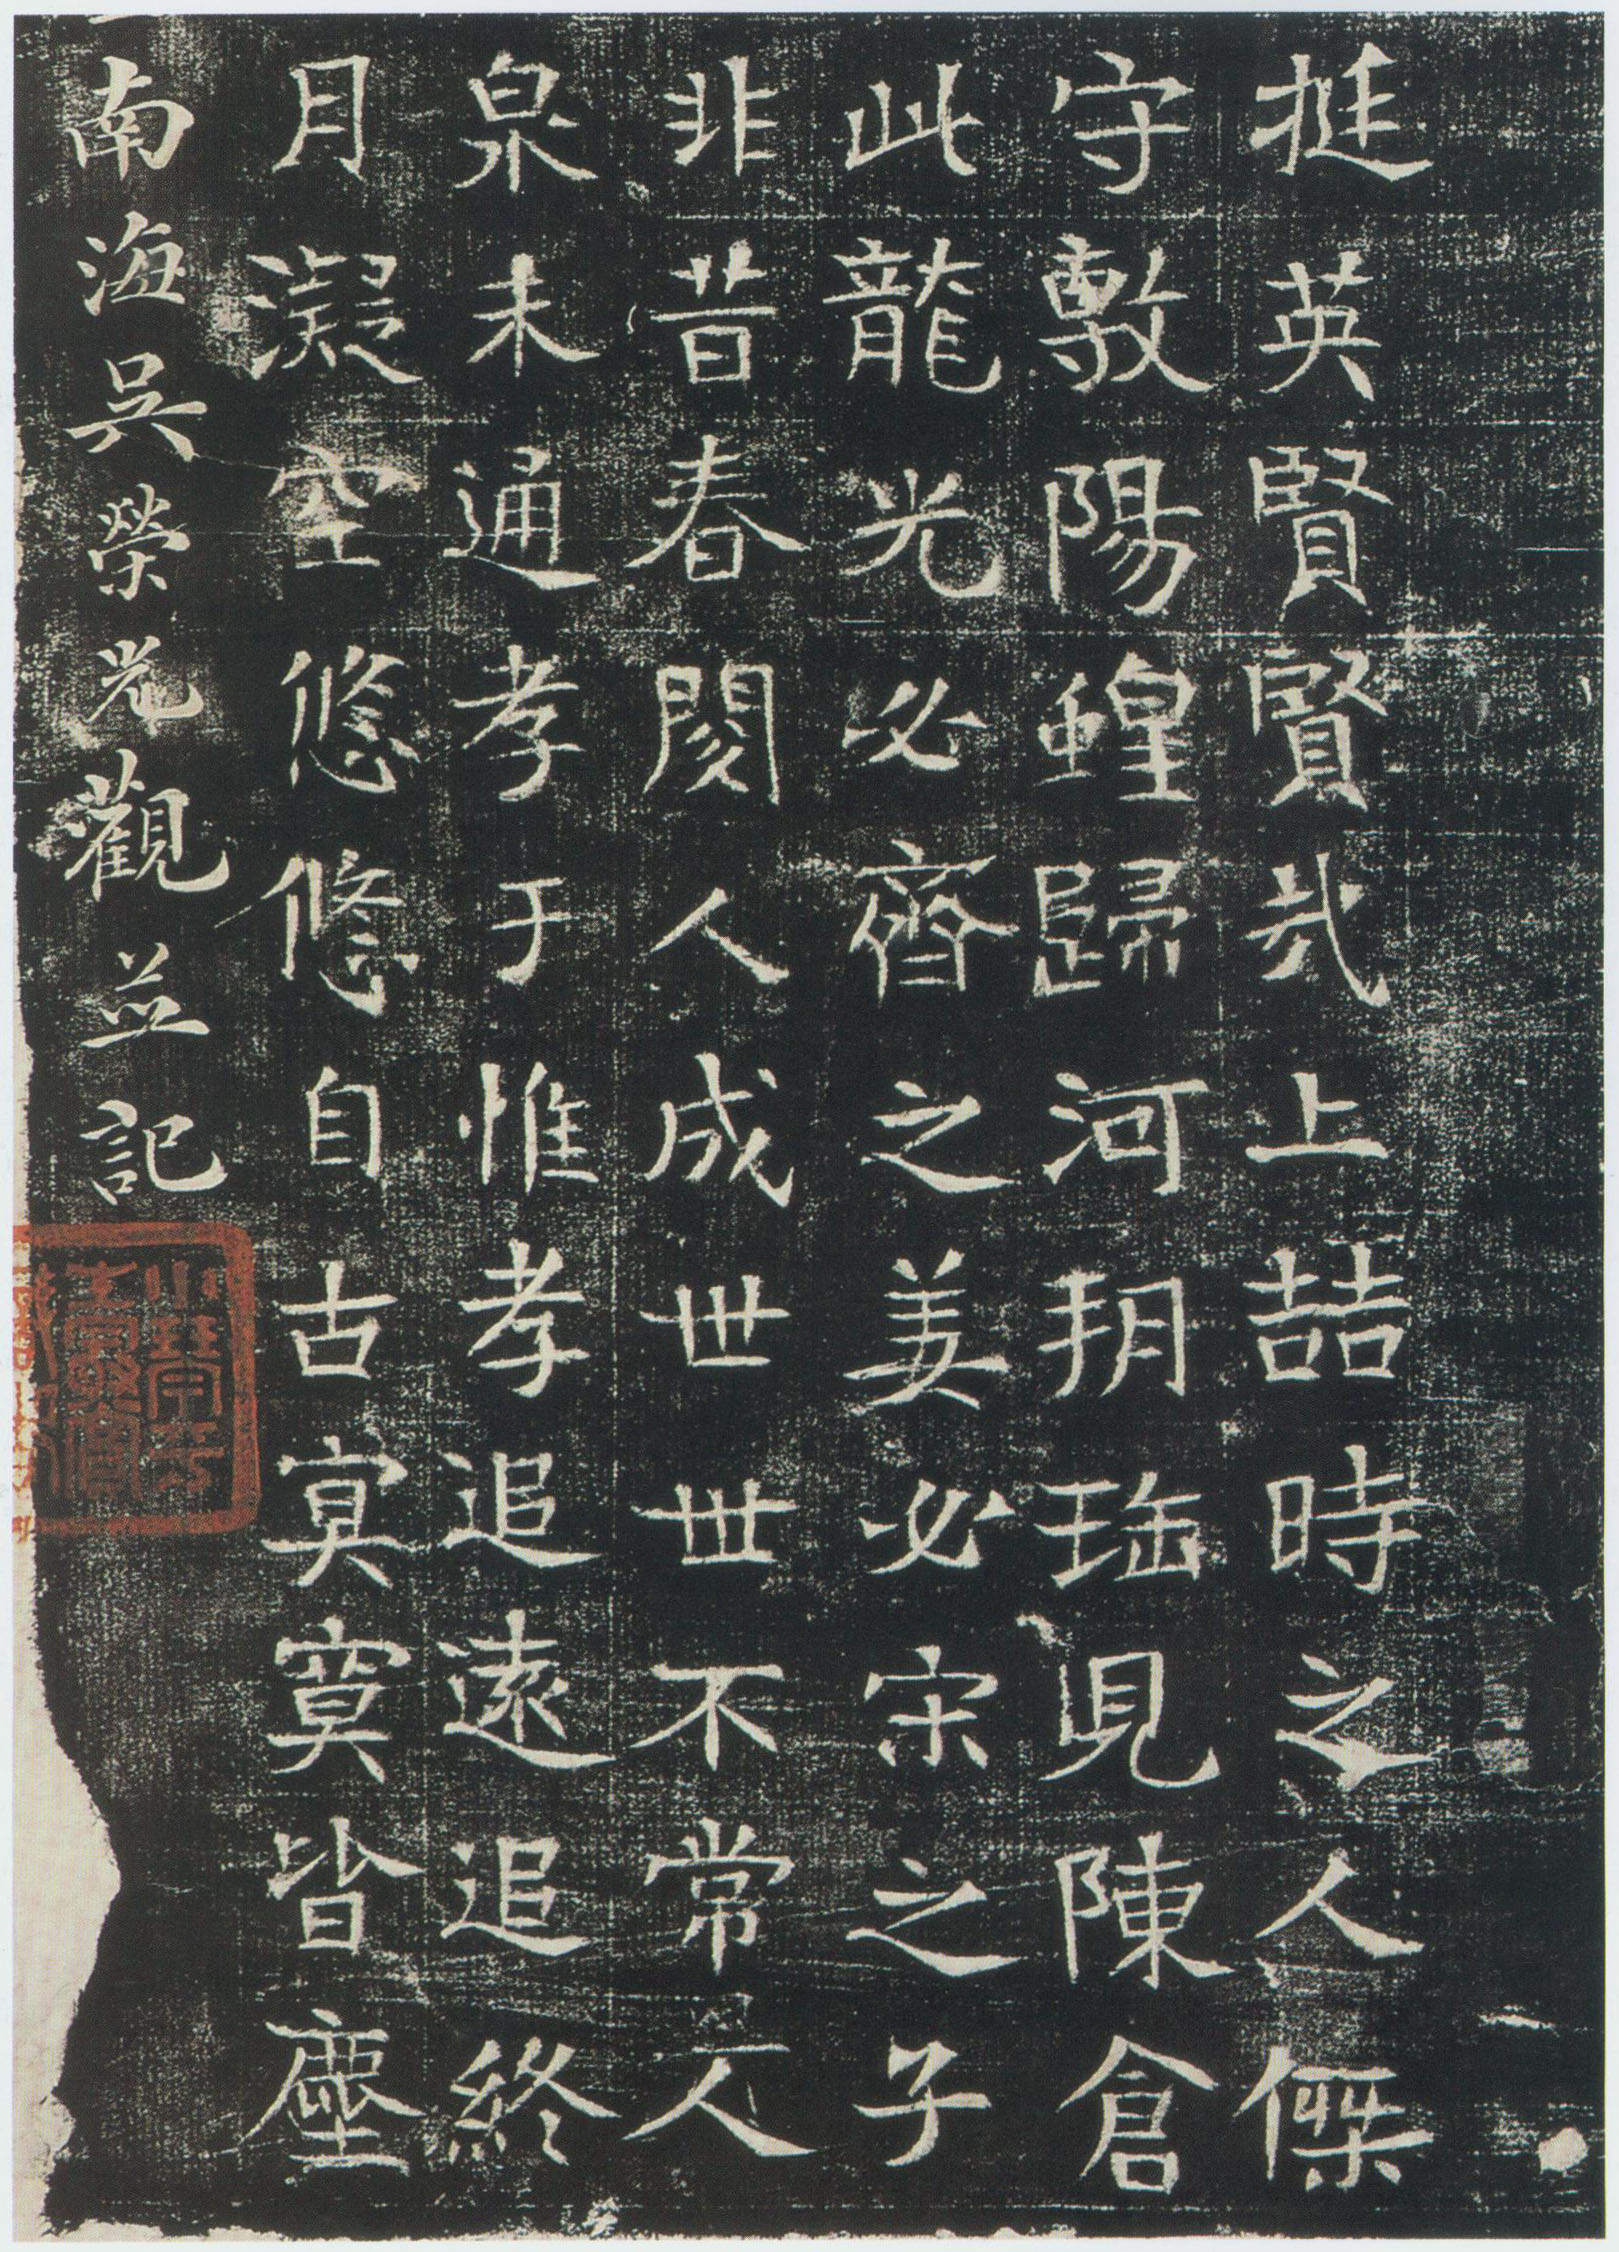 挺英賢賢弐上喆時之人傑
守敷陽蝗歸河玥瑤見陳倉
此龍光必齊之美必宋之子
非昔春閡人成世世不常人
泉未通孝于惟孝追遠追終
月凝空悠悠自古冥冥皆塵
南海吳榮光觀並記